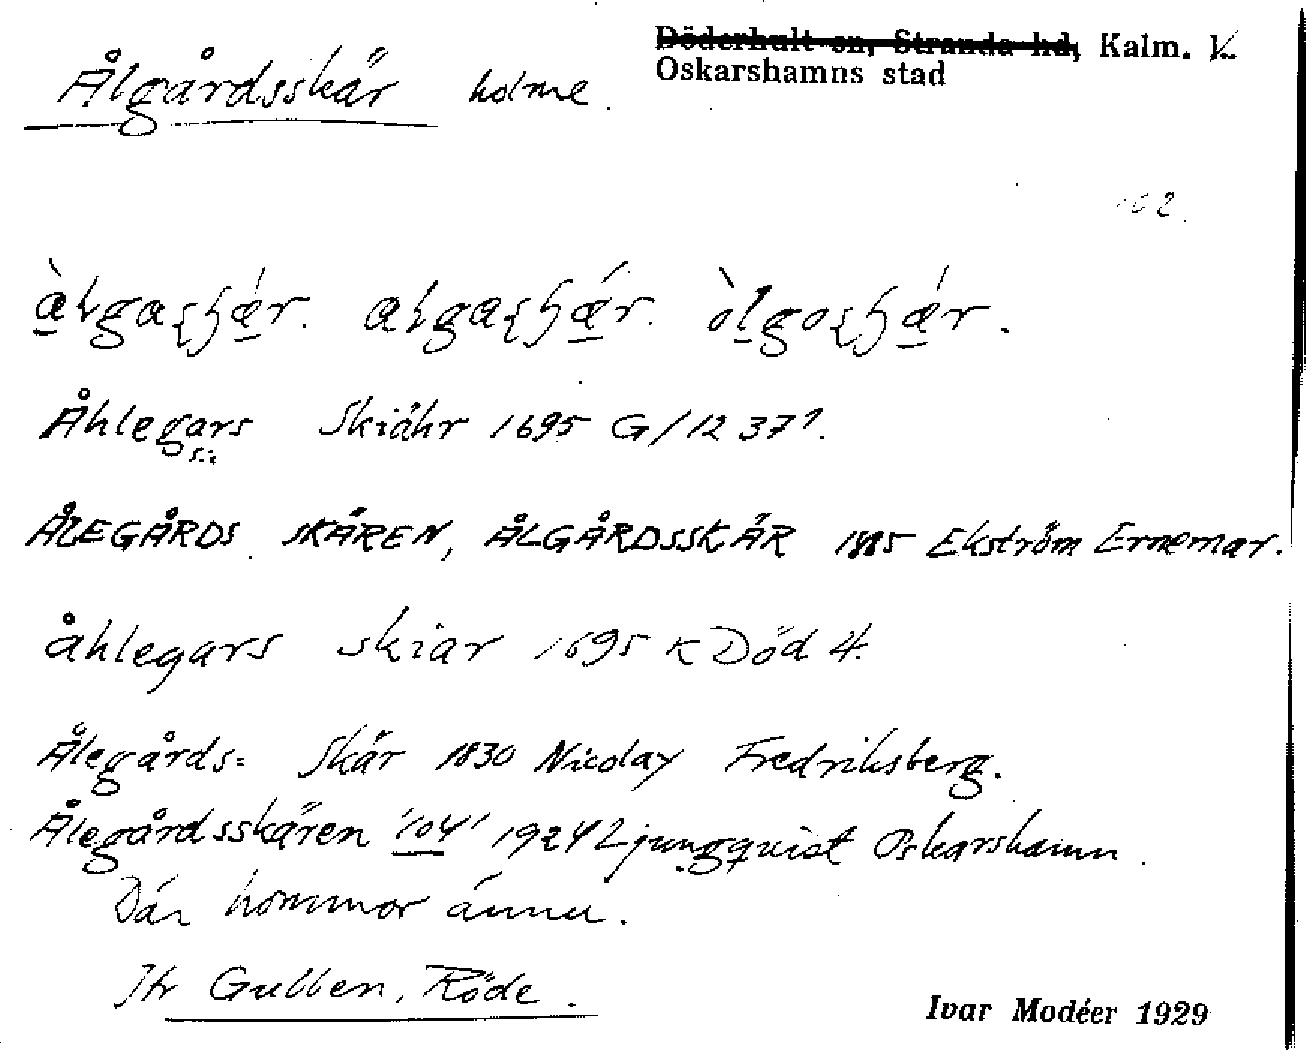 Ålgårdsskär holme.
Döderhult sn, Stranda hd, Kalm. l.
Oskarshamns stad
Åhlegars Skiähr 1695 G/12 37¹.
ÅLEGÅRDS SKÄREN, ÅLGÅRDSSKÄR 1885 Ekström Ernemar.
åhlegars skiar 1695 K Död 4.
Ålegårds= Skär 1830 Nicolay Fredriksberg.
Ålegårdsskären '104' 1924 Ljungquist Oskarshamn.
Där hommor ännu.
Itr Gullen, Röde.
Ivar Modéer 1929